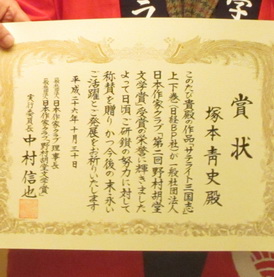 賞状
塚本靑史殿
このたび貴殿の作品『サテライト三国志』
上下巻(日経BP社)が一般社団法人
日本作家クラブ「第二回野村胡堂
文学賞」受賞の栄誉に輝きました
よって日頃ご研鑽の努力に対して
称賛を贈り かつ今後の末永い
ご活躍とご発展をお祈りいたします
平成二十六年十月三十日
一般社団法人日本作家クラブ理事長
一般社団法人日本作家クラブ「野村胡堂文学賞」
実行委員長 中村信也